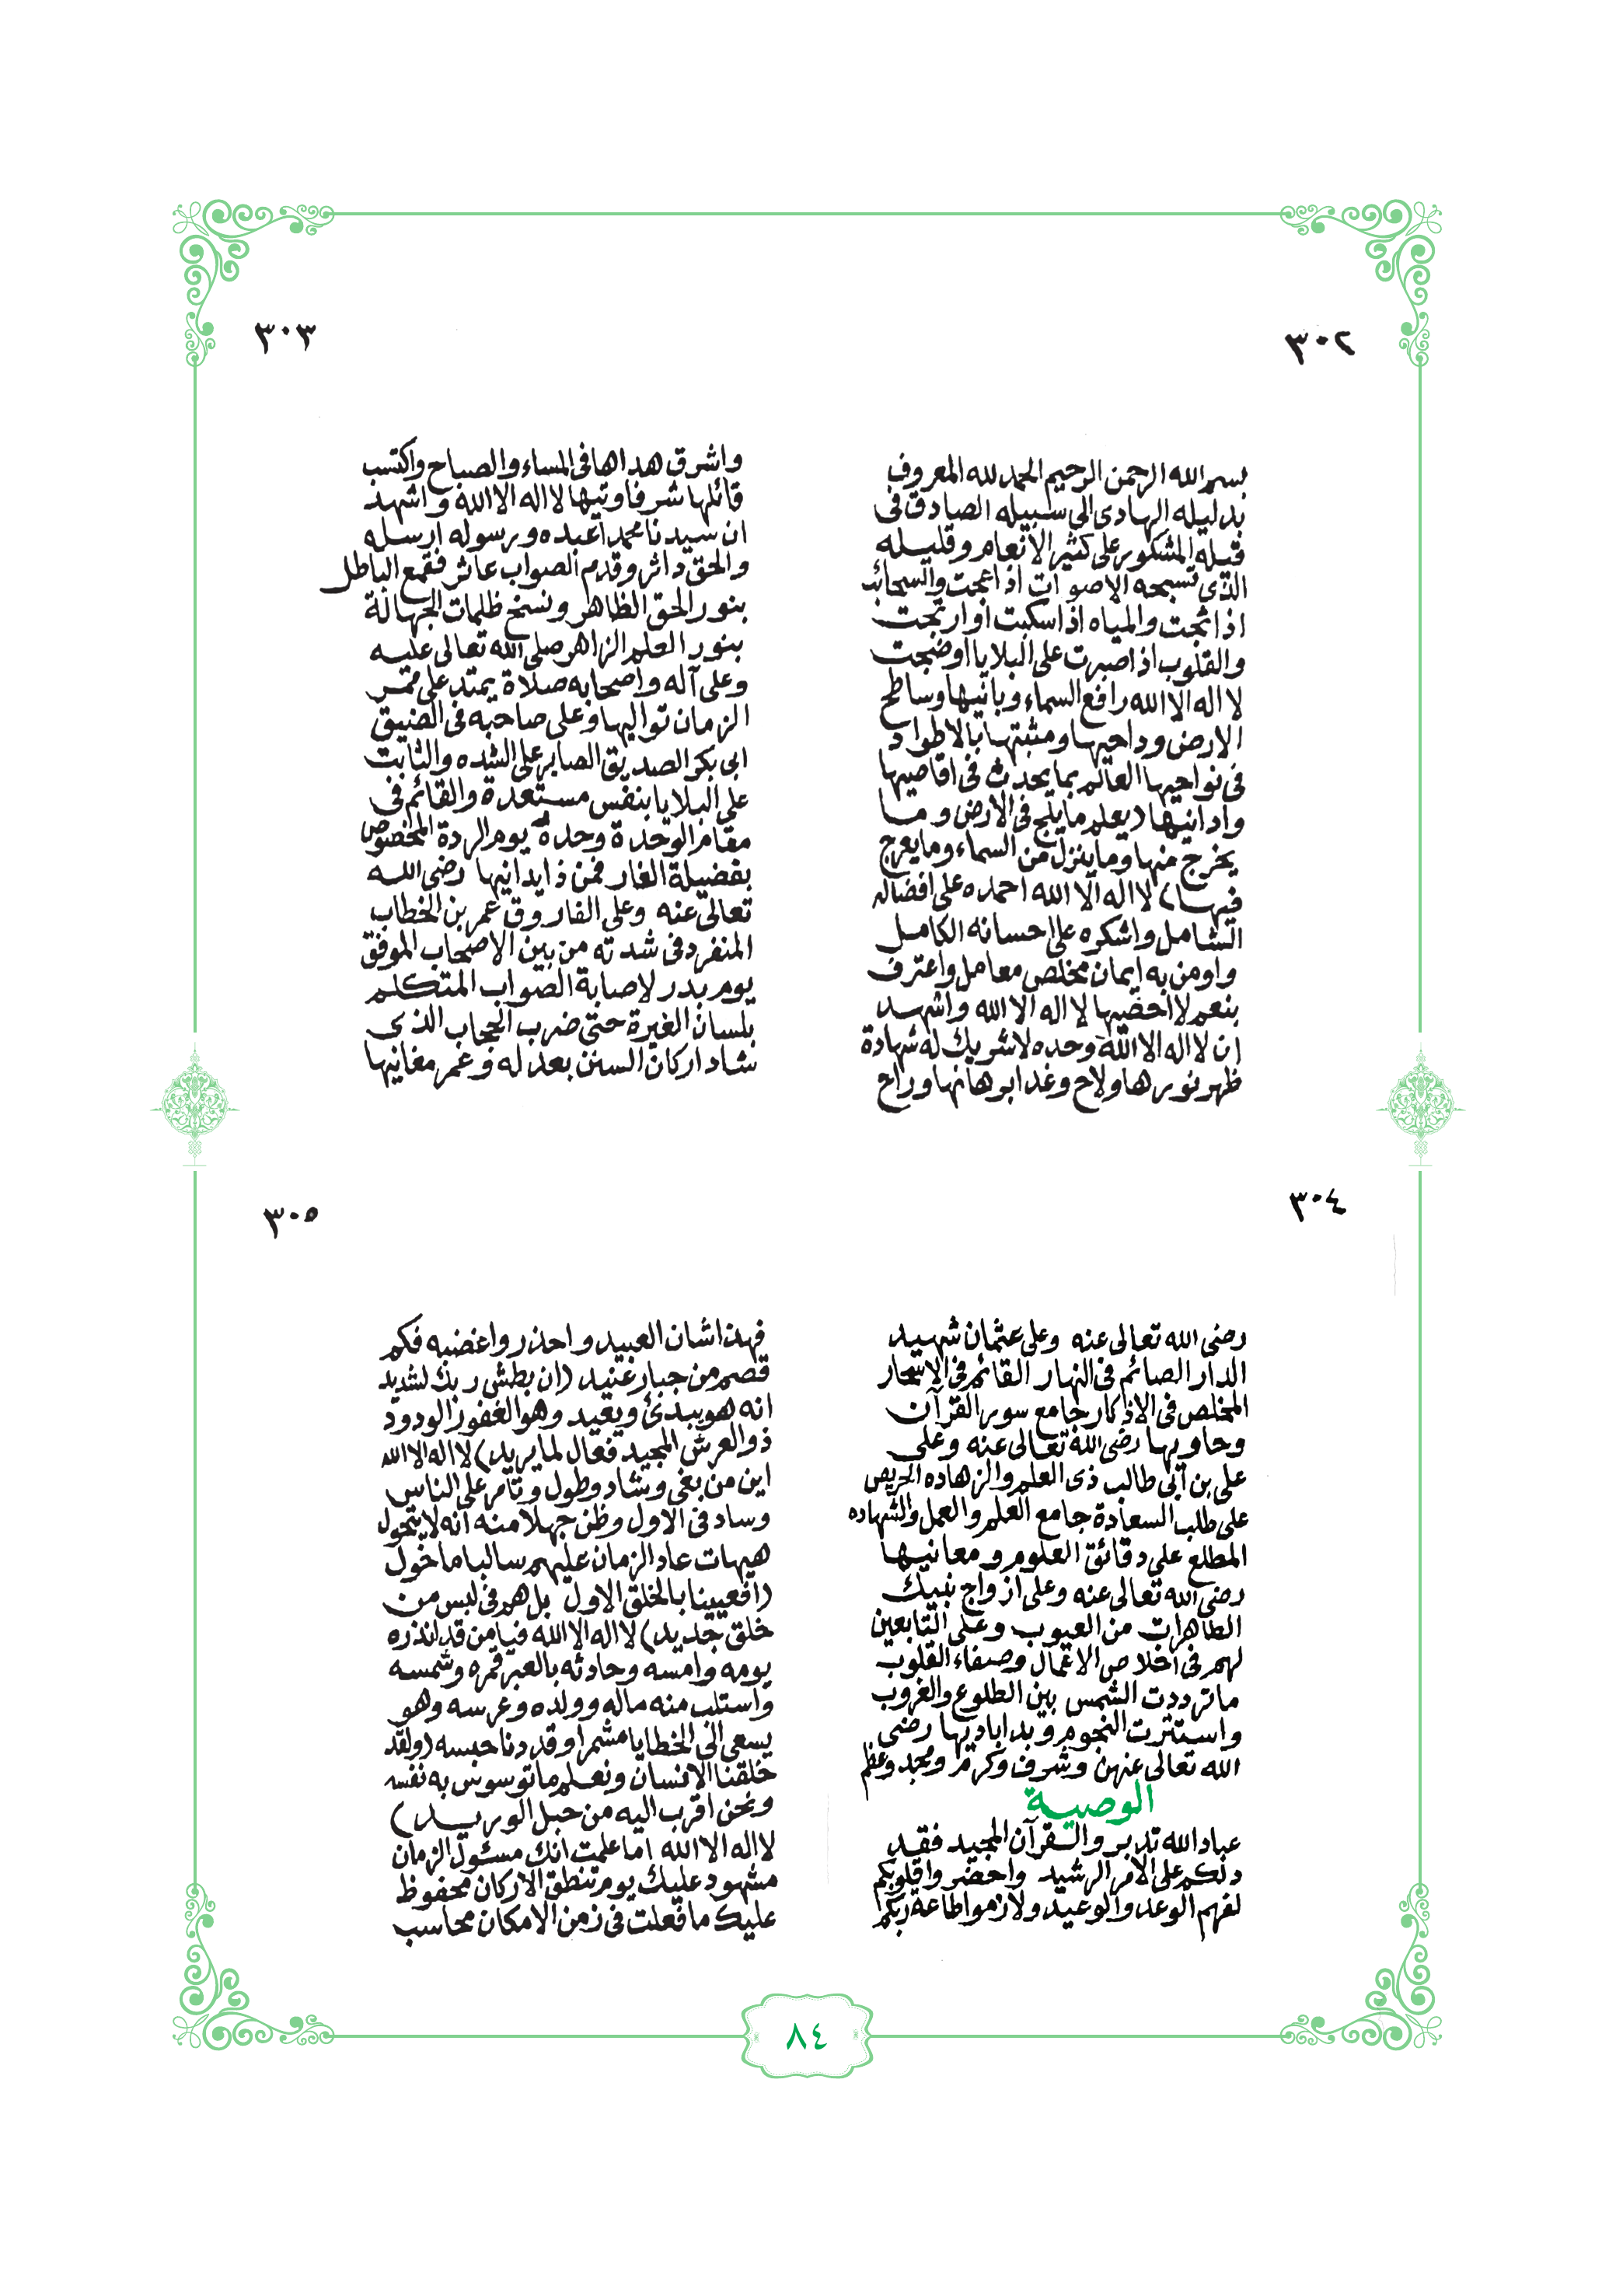 ٣٠٢
بسم الله الرحمن الرحيم الحمد لله المعروف
بدليله الهادى الى سبيله الصادق فى
قيله المشكور على كثير الانعام وقليله
الذى تسبحه الاصوات اذا عجت والسحائب
اذا ثجت والمياه اذا سكبت او ارتجت
والقلوب اذا صبرت على البلايا او ضجت
لا اله الا الله رافع السماء وبانيها وساطح
الارض وداحيها ومثبتها بالاطواد
فى نواحيها العالم بما يحدث فى اقاصيها
وادانيها (يعلم ما يلج فى الارض وما
يخرج منها وما ينزل من السماء وما يعرج
فيها) لا اله الا الله احمده على افضاله
الشامل واشكره على احسانه الكامل
واومن به ايمان مخلص معامل واعترف
بنعم لا احصيها لا اله الا الله واشهد
ان لا اله الا الله وحده لا شريك له شهادة
ظهر نورها ولاح وغدا برهانها وراح
٣٠٣
واشرق هداها فى المساء والصباح واكتسب
قائلها شرفا وتيها لا اله الا الله واشهد
ان سيدنا محمدا عبده ورسوله ارسله
والحق داثر وقدم الصواب عاثر فقمع الباطل
بنور الحق الظاهر ونسخ ظلمات الجهالة
بنور العلم الزاهر صلى الله تعالى عليه
وعلى آله واصحابه صلاة يمتد على ممر
الزمان تواليها وعلى صاحبه فى الضيق
ابى بكر الصديق الصابر على الشده والثابت
على البلايا بنفس مستعدة والقائم فى
مقام الوحدة وحده يوم الردة المخصوص
بفضيلة الغار فمن ذا يدانيها رضى الله
تعالى عنه وعلى الفاروق عمر بن الخطاب
المنفرد فى شدته من بين الاصحاب الموفق
يوم بدر لاصابة الصواب المتكلم
بلسان الغيرة حتى ضرب الحجاب الذى
شاد اركان السنن بعدله وعمر مغانيها
٣٠٤
رضى الله تعالى عنه وعلى عثمان شهيد
الدار الصائم فى النهار القائم فى الاسحار
المخلص فى الاذكار جامع سور القرآن
وحاويها رضى الله تعالى عنه وعلى
على بن ابى طالب ذى العلم والزهاده الحريص
على طلب السعادة جامع العلم والعمل والشهاده
المطلع على دقائق العلوم ومعانيها
رضى الله تعالى عنه وعلى ازواج نبيك
الطاهرات من العيوب وعلى التابعين
لهم فى اخلاص الاعمال وصفاء القلوب
ما ترددت الشمس بين الطلوع والغروب
واستترت النجوم وبدا باديها رضى
الله تعالى عنهن وشرف وكرم ومجد وعظم
الوصية
عباد الله تدبروا القرآن المجيد فقد
دلكم على الامر الرشيد واحضروا قلوبكم
لفهم الوعد والوعيد ولازموا طاعة ربكم
٣٠٥
فهذا شان العبيد واحذروا غضبه فكم
قصم من جبار عنيد (ان بطش ربك لشديد
انه هو يبدئ ويعيد وهو الغفور الودود
ذو العرش المجيد فعال لما يريد) لا اله الا الله
اين من بغى وشاد وطول وتامر على الناس
وساد فى الاول وظن جهلا منه انه لا يتحول
هيهات عاد الزمان عليهم سالبا ما خول
(افعيينا بالخلق الاول بل هم فى لبس من
خلق جديد) لا اله الا الله فيا من قد انذره
يومه وامسه وحادثه بالعبر قمره وشمسه
واستلب منه ماله وولده وعرسه وهو
يسعى الى الخطايا مشمرا وقد دنا حبسه (ولقد
خلقنا الانسان ونعلم ما توسوس به نفسه
ونحن اقرب اليه من حبل الوريد)
لا اله الا الله اما علمت انك مسئول الزمان
مشهود عليك يوم تنطق الاركان محفوظ
عليك ما فعلت فى زمن الامكان محاسب
٨٤